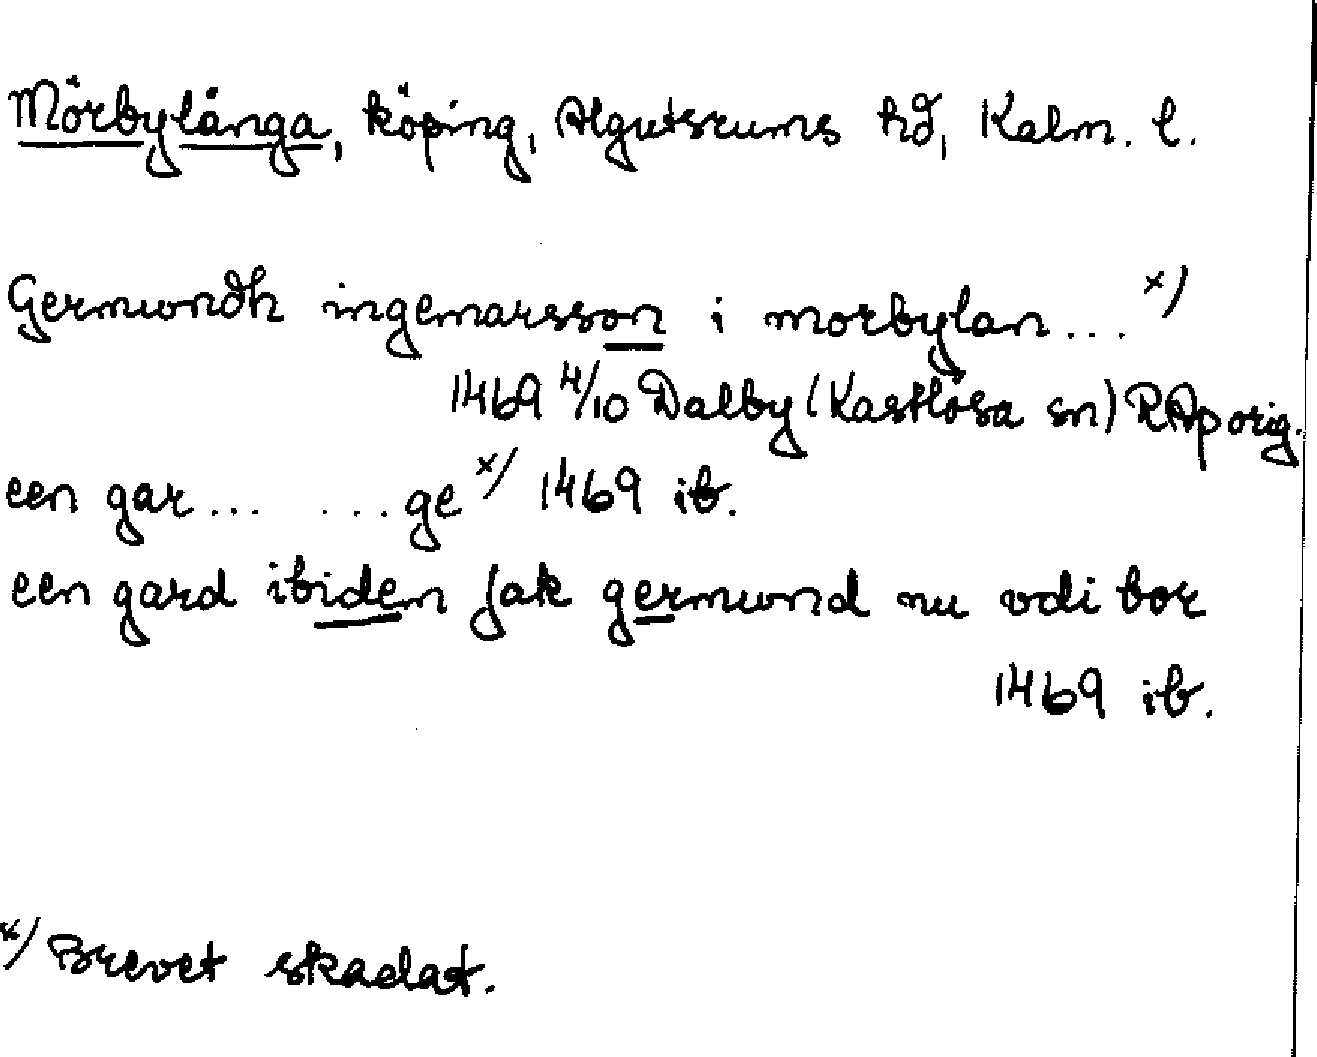 Mörbylånga, köping, Algutsrums hd, Kalm. l.
Germundh ingemarsson i morbylan... x)
1469 4/10 Dalby (Kastlösa sn) RAp orig.
een gar... ...ge x) 1469 ib.
een gard ibiden Jak germund nu vdi bor
1469 ib.
x) Brevet skadat.